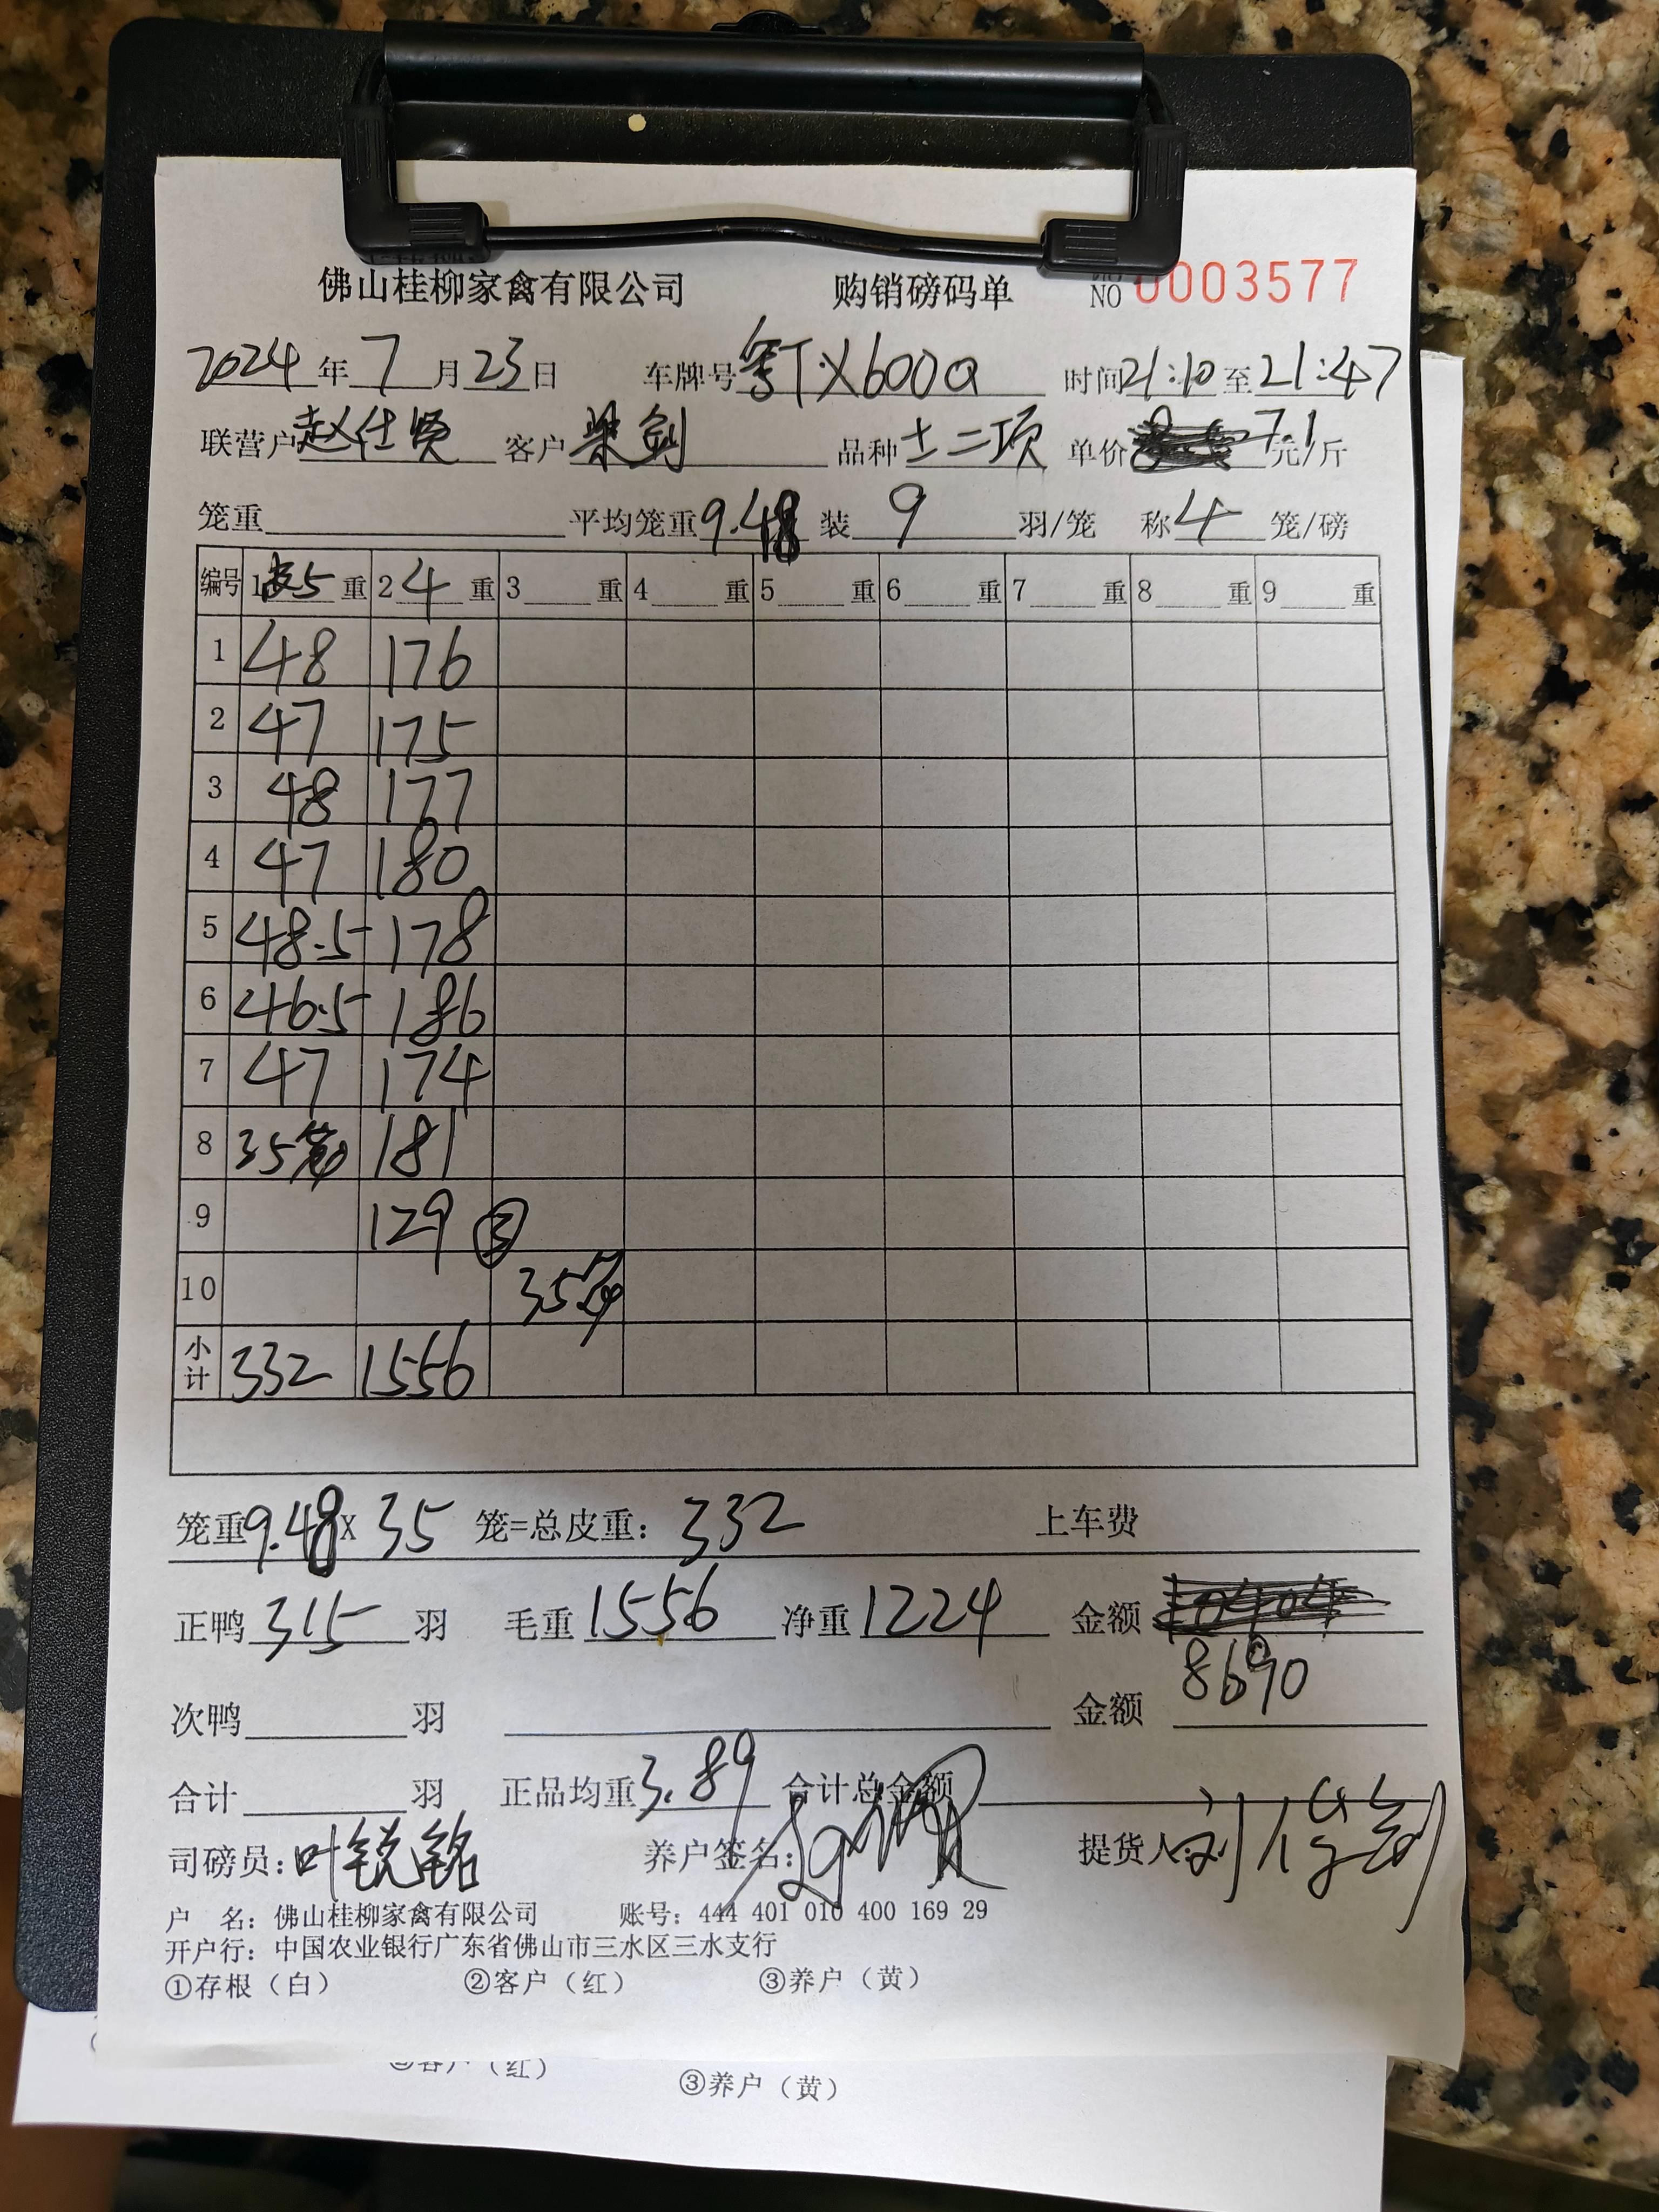 佛山桂柳家禽有限公司 购销磅码单 NO 0003577
2024 年 7 月 23 日 车牌号 粤TX600Q 时间 21:10 至 21:47
联营户 赵仕贤 客户 梁剑 品种 士二项 单价 7.1 元/斤
笼重 平均笼重 9.48 装 9 羽/笼 称 4 笼/磅
编号 1 皮5 重 2 4 重 3 重 4 重 5 重 6 重 7 重 8 重 9 重
1 48 176
2 47 175
3 48 177
4 47 180
5 48.5 178
6 46.5 186
7 47 174
8 35笼 181
9 129 ③
10 35笼
小计 332 1556
笼重 9.48 X 35 笼=总皮重: 332 上车费
正鸭 315 羽 毛重 1556 净重 1224 金额 10404
8690
次鸭 羽 金额
合计 羽 正品均重 3.89 合计总金额
司磅员: 叶锐铭 养户签名: 提货人: 刘俊剑
户 名: 佛山桂柳家禽有限公司 账号: 444 401 010 400 169 29
开户行: 中国农业银行广东省佛山市三水区三水支行
①存根（白） ②客户（红） ③养户（黄）
②客户（红） ③养户（黄）